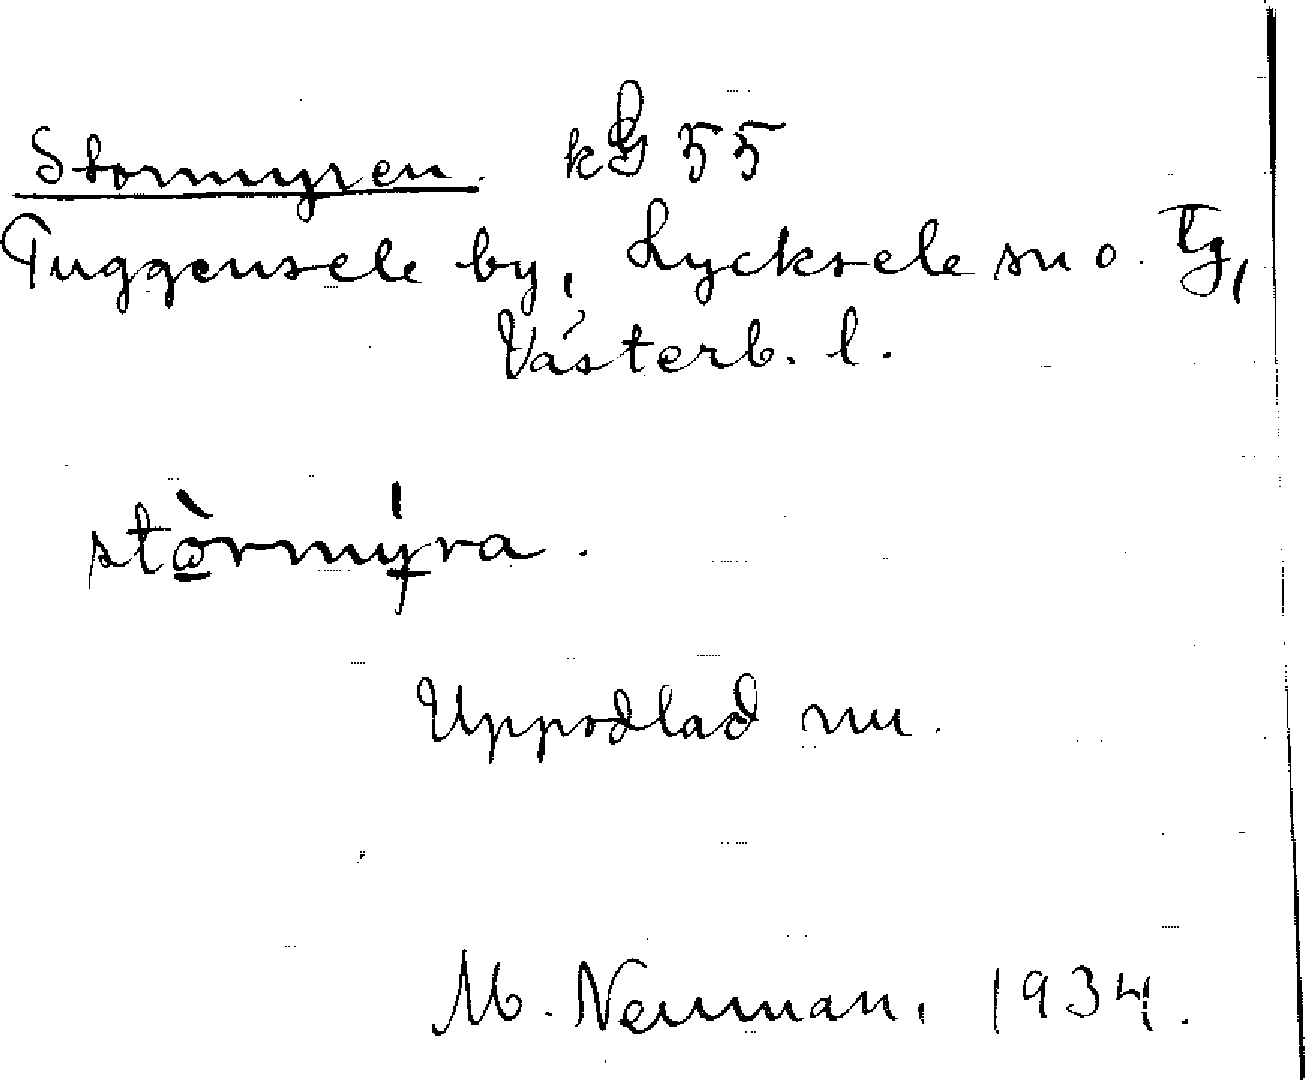 Stormyren. kG 55
Tuggensele by, Lycksele sn o. Tg,
Västerb. l.
stòrmýra.
Uppodlad nu.
M. Neuman, 1934.